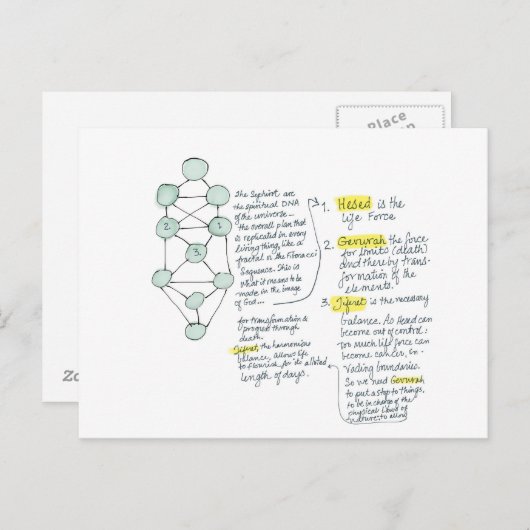 Place
2
1
3
The Sephirot are
the spiritual DNA
of the universe...
the overall plan that
is replicated in every
living thing, like a
fractal or the Fibonacci
Sequence. This is
what it means to be
made in the image
of God...
1. Hesed is the
life Force
2. Gevurah the force
for limits (death)
and thereby trans-
formation of the
elements.
3. Tiferet is the necessary
balance. As Hesed can
become out of control:
too much life force can
become cancer, in-
vading boundaries.
So we need Gevurah
to put a stop to things,
to be in charge of the
physical laws of
nature-to allow
for transformation &
progress through
death.
Tiferet, the harmonious
balance, allows life
to flourish for its allotted
length of days.